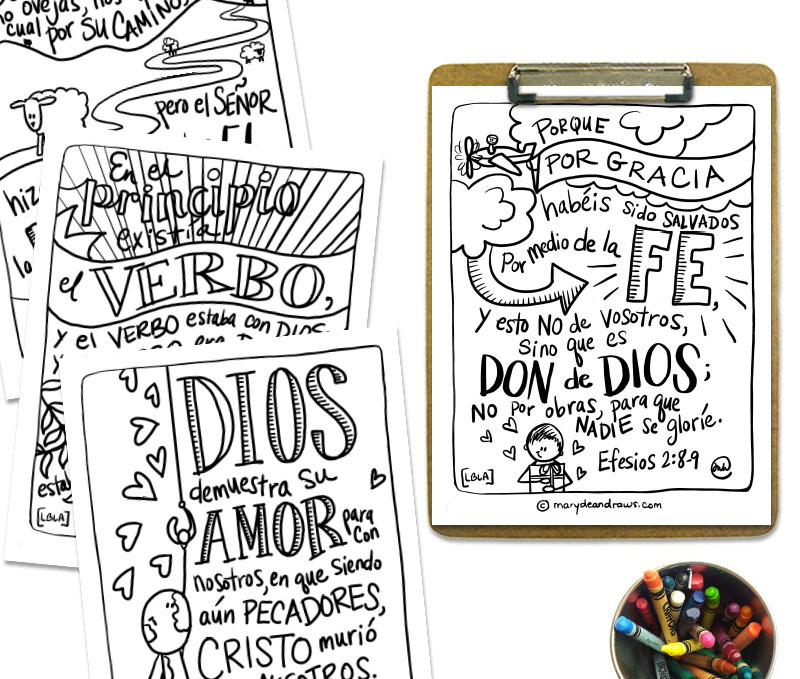 no ovejas, nos
cual por SU CAMINO,
pero el SEÑOR
hiz
En el
principio
existía
el VERBO,
y el VERBO estaba con DIOS,
esta
[LBLA]
DIOS
demuestra su
AMOR para
con
nosotros, en que siendo
aún PECADORES,
CRISTO murió
NOSOTROS.
PORQUE
POR GRACIA
habéis sido SALVADOS
Por medio de la
FE,
y esto NO de vosotros,
sino que es
DON de DIOS;
NO por obras, para que
NADIE se gloríe.
Efesios 2:8-9
[LBLA]
© marydeandraws.com